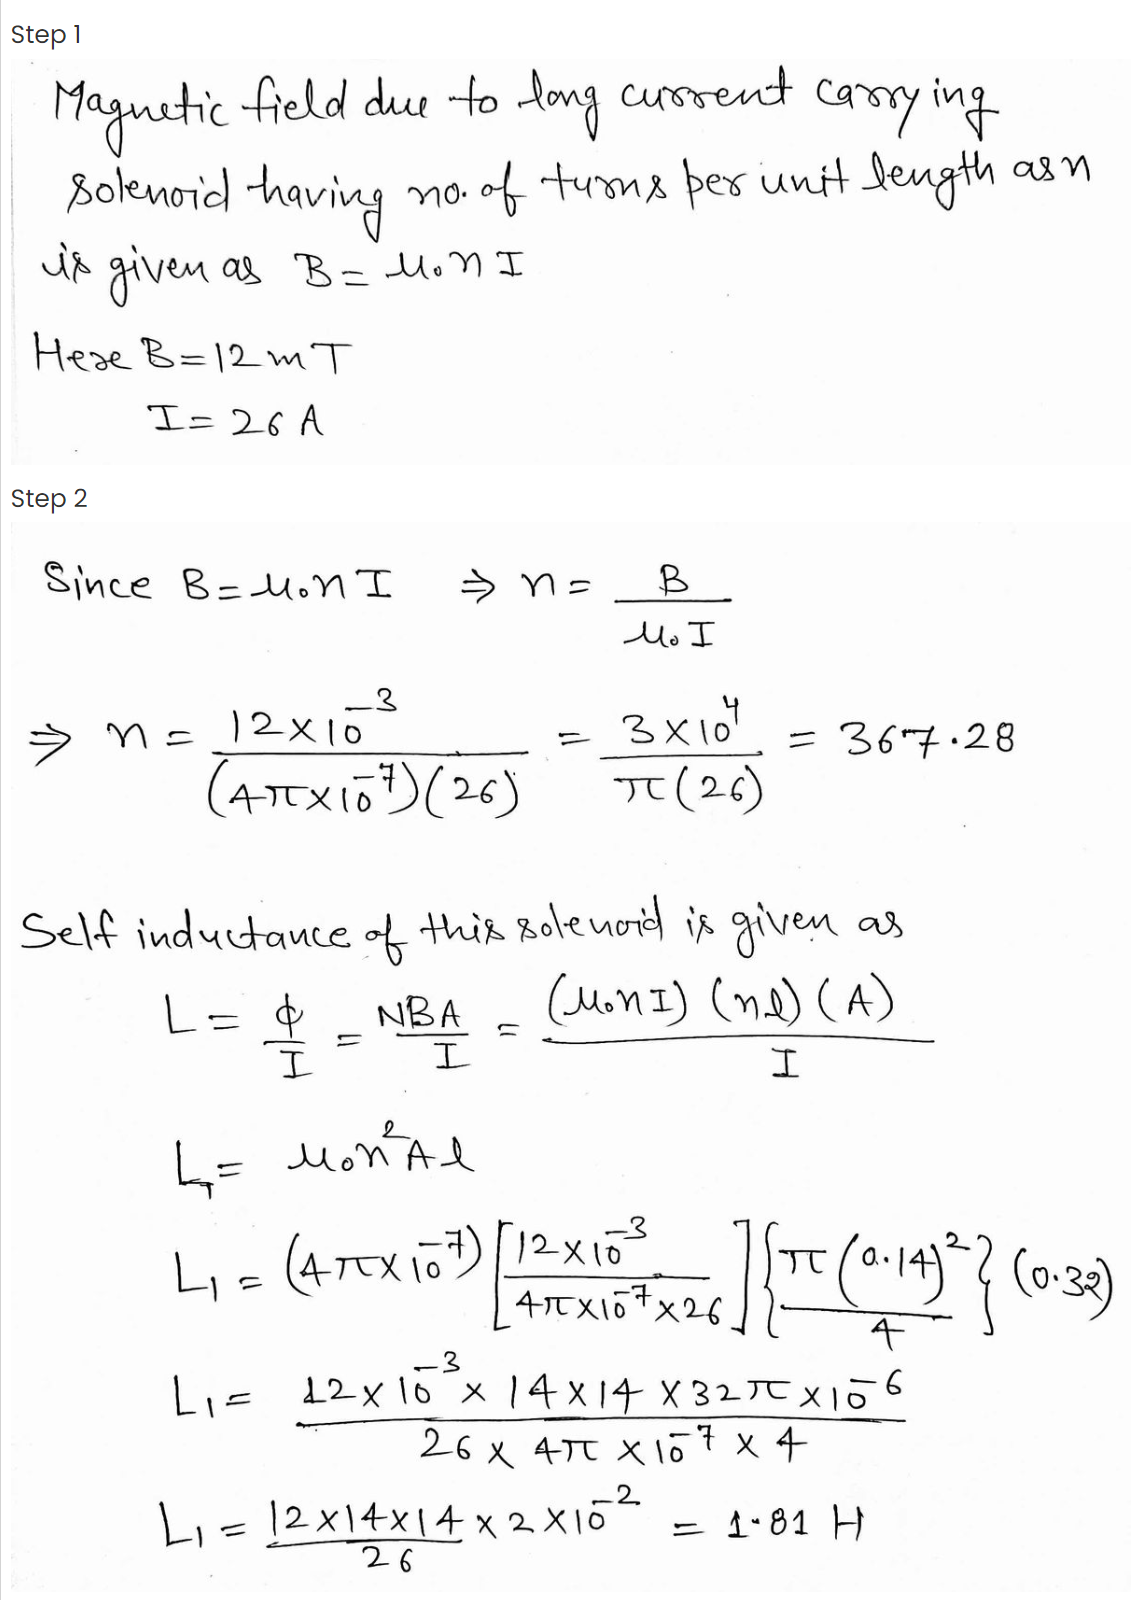 Step 1
Magnetic field due to long current carrying
solenoid having no. of turns per unit length as n
is given as B = μ₀nI
Here B=12mT
I= 26 A
Step 2
Since B=μ₀nI ⇒ n = B / μ₀I
⇒ n = 12×10⁻³ / (4π×10⁻⁷)(26) = 3×10⁴ / π(26) = 367.28
Self inductance of this solenoid is given as
L = ϕ/I = NBA/I = (μ₀nI)(nl)(A) / I
L₁ = μ₀n²Al
L₁ = (4π×10⁻⁷) [12×10⁻³ / 4π×10⁻⁷×26] {π(0.14)² / 4} (0.32)
L₁ = 12×10⁻³ × 14×14 ×32π×10⁻⁶ / 26 × 4π ×10⁻⁷ × 4
L₁ = 12×14×14 / 26 × 2×10⁻² = 1.81 H